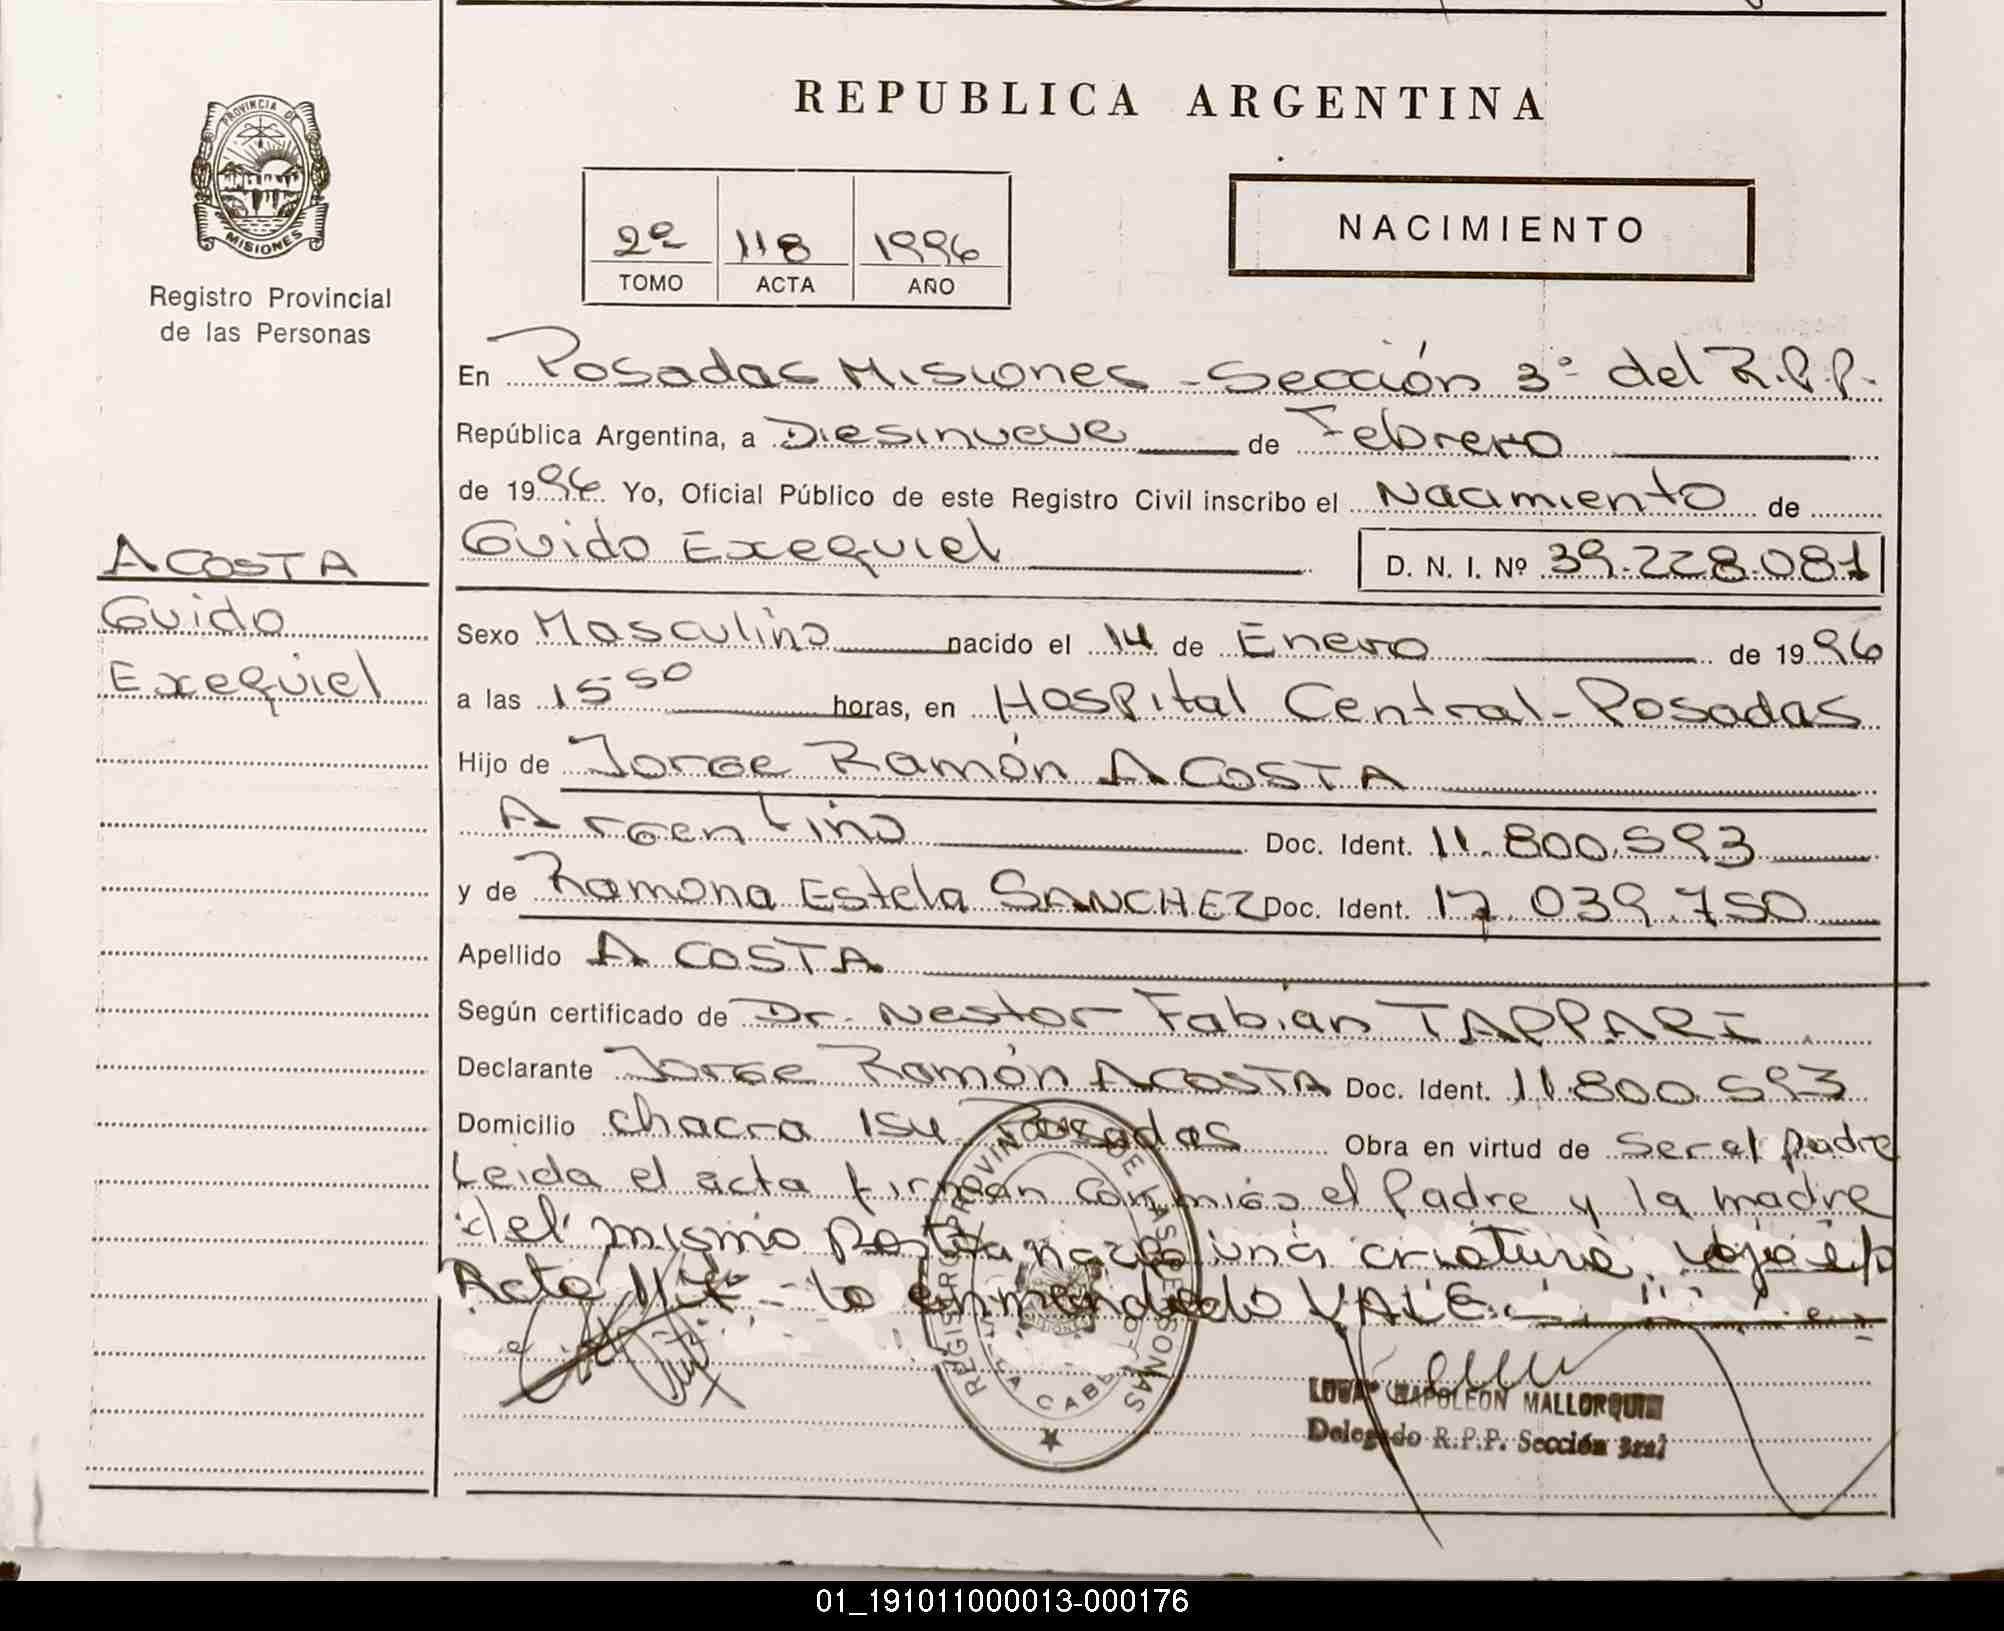 REPUBLICA ARGENTINA
PROVINCIA DE
MISIONES
Registro Provincial
de las Personas
2º 118 1996
TOMO ACTA AÑO
NACIMIENTO
En Posadas Misiones - Sección 3º del R.P.P.
República Argentina, a Diesinueve de Febrero
de 1996 Yo, Oficial Público de este Registro Civil inscribo el Nacimiento de
Guido Exequiel D. N. I. Nº 39.228.081
ACOSTA
Guido
Exequiel
Sexo Masculino nacido el 14 de Enero de 1996
a las 15 50 horas, en Hospital Central - Posadas
Hijo de Jorge Ramón ACOSTA
Argentino Doc. Ident. 11.800.593
y de Ramona Estela SANCHEZ Doc. Ident. 17.039.750
Apellido ACOSTA
Según certificado de Dr. Nestor Fabian TAPPARI
Declarante Jorge Ramón ACOSTA Doc. Ident. 11.800.593
Domicilio chacra 154 Posadas Obra en virtud de Ser el padre
Leida el acta firman conmigo el Padre y la madre
del mismo nacio una criatura
Acta lo enmendado VALE
REGISTRO PROVINCIAL DE LAS PERSONAS
NAPOLEON MALLORQUIN
Delegado R.P.P. Sección 3ra
01_191011000013-000176